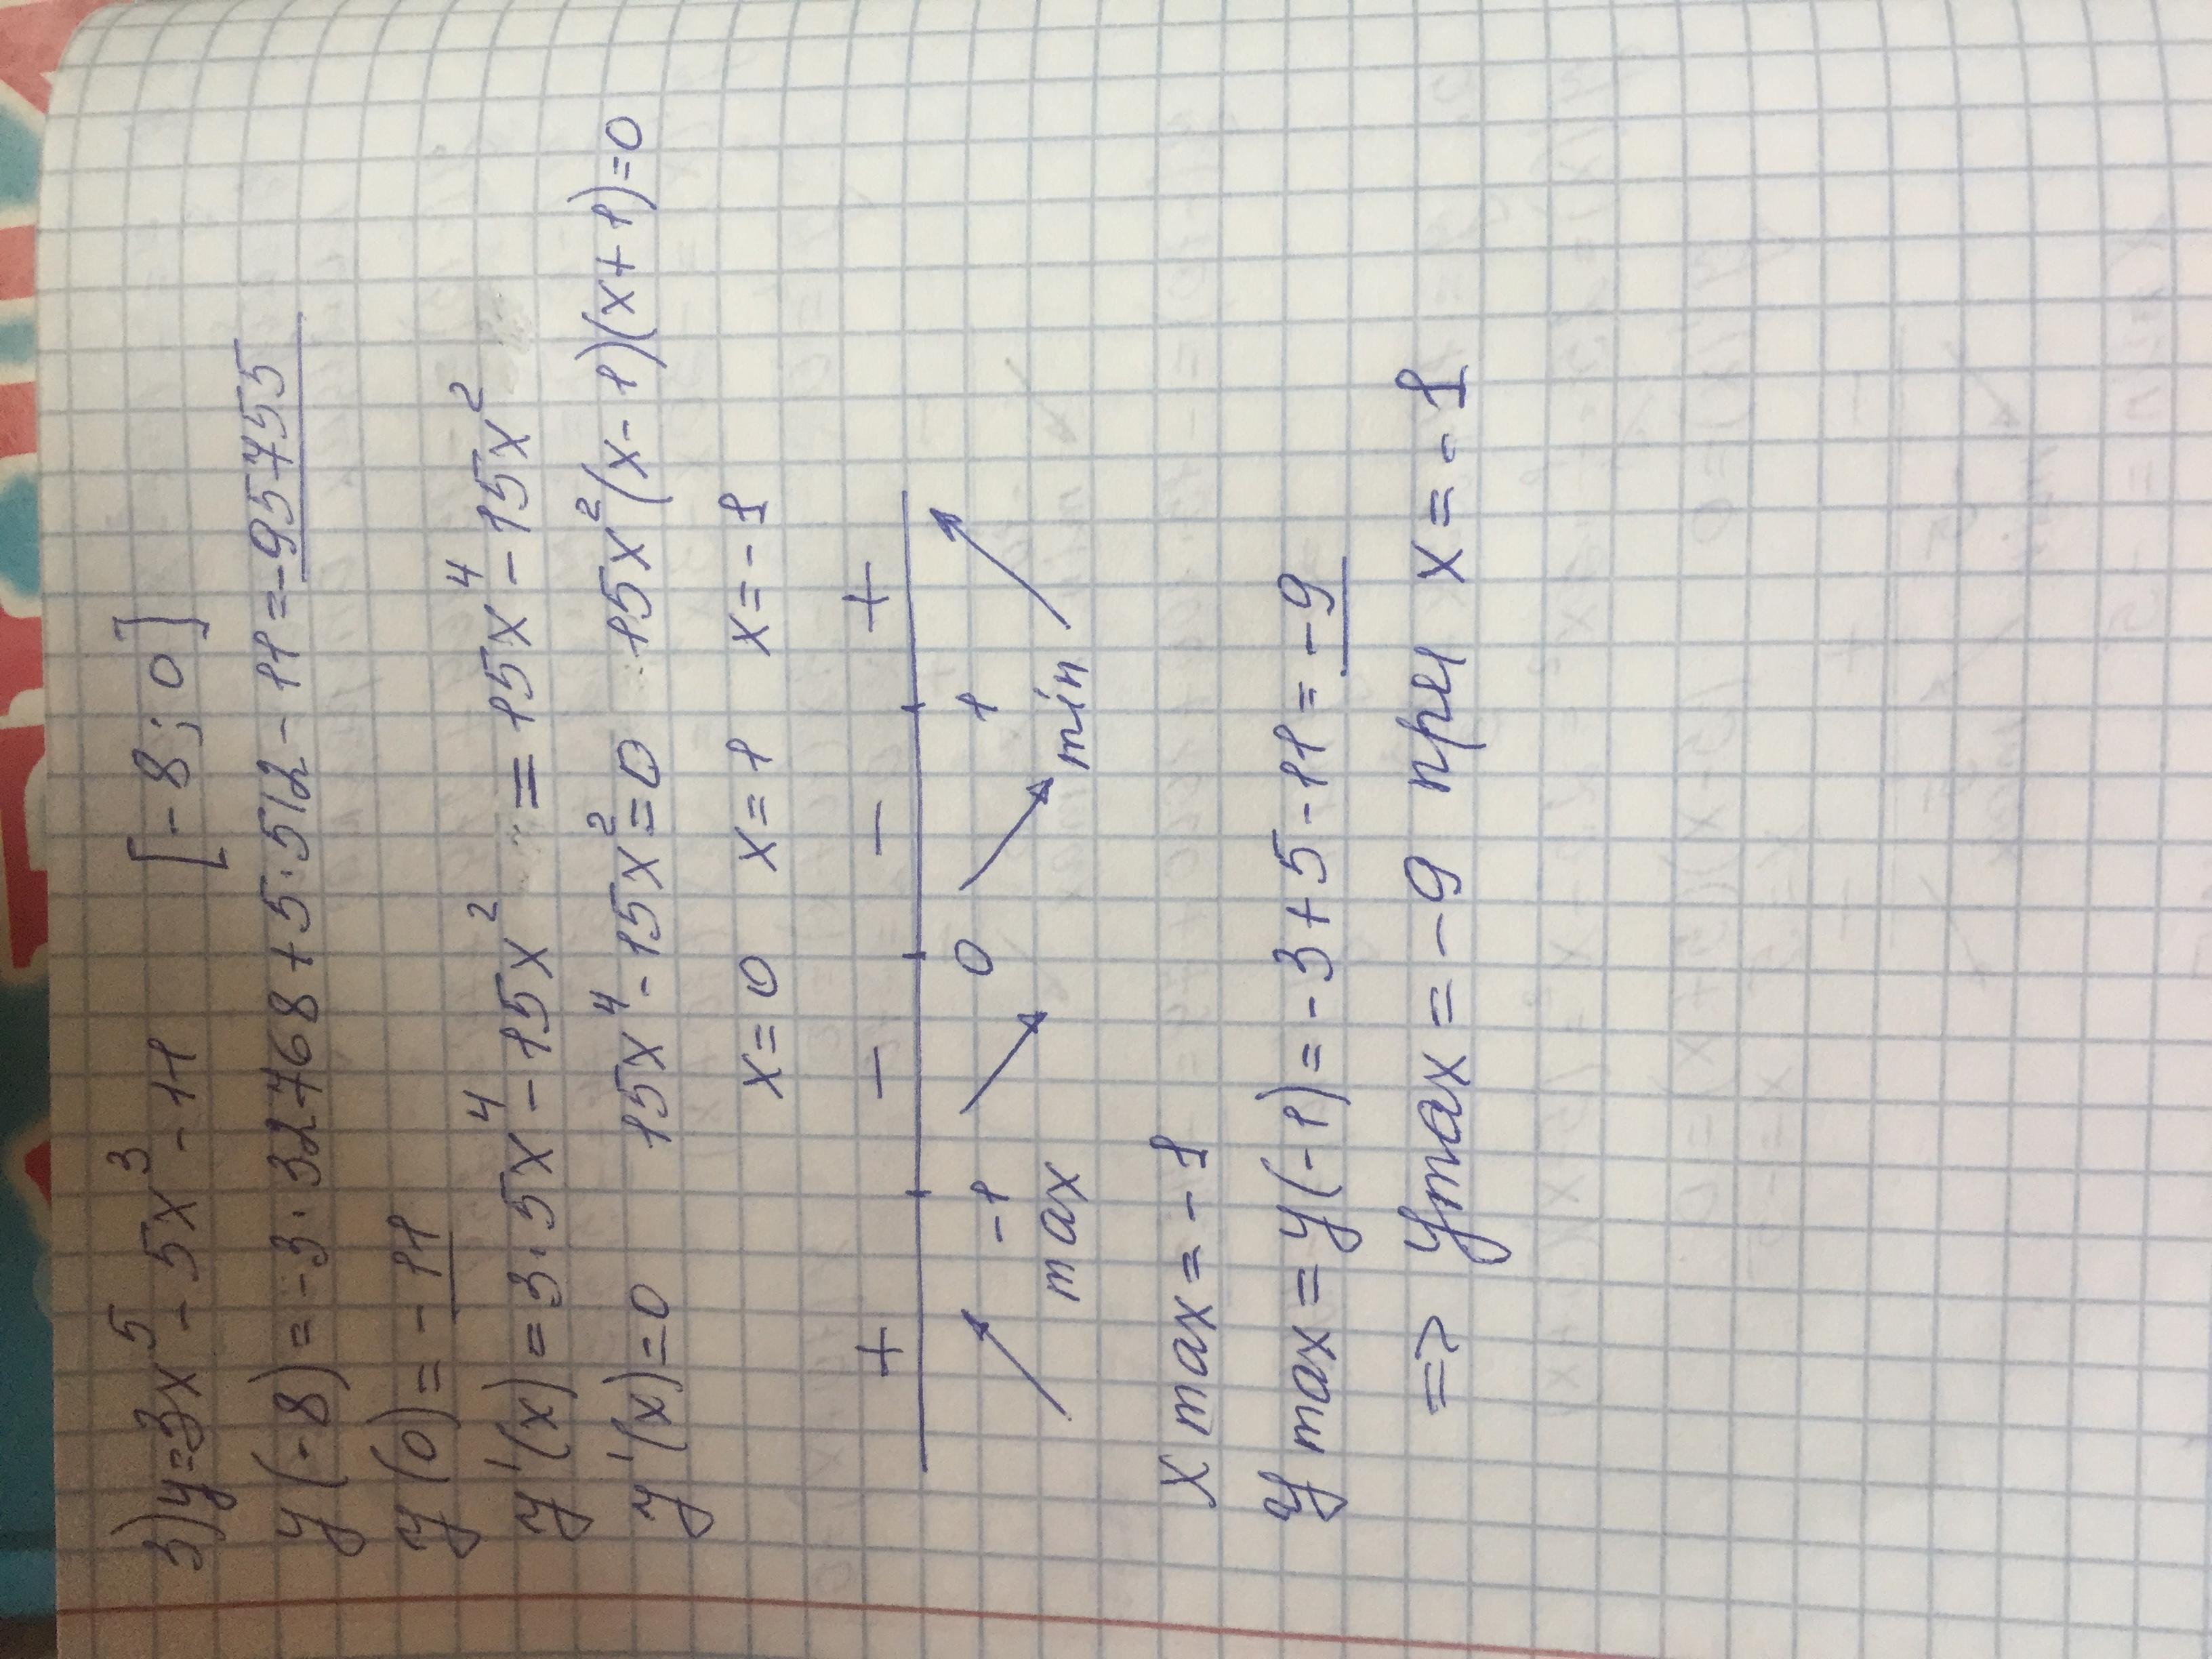 3) y=3x⁵-5x³-11 [-8;0]
y(-8)=-3·32768+5·512-11=-95755
y(0)=-11
y'(x)=3·5x⁴-15x²=15x⁴-15x²
y'(x)=0 15x⁴-15x²=0 15x²(x-1)(x+1)=0
x=0 x=1 x=-1
+ - - +
-1 0 1
max min
x max=-1
y max=y(-1)=-3+5-11=-9
=> ymax=-9 при x=-1